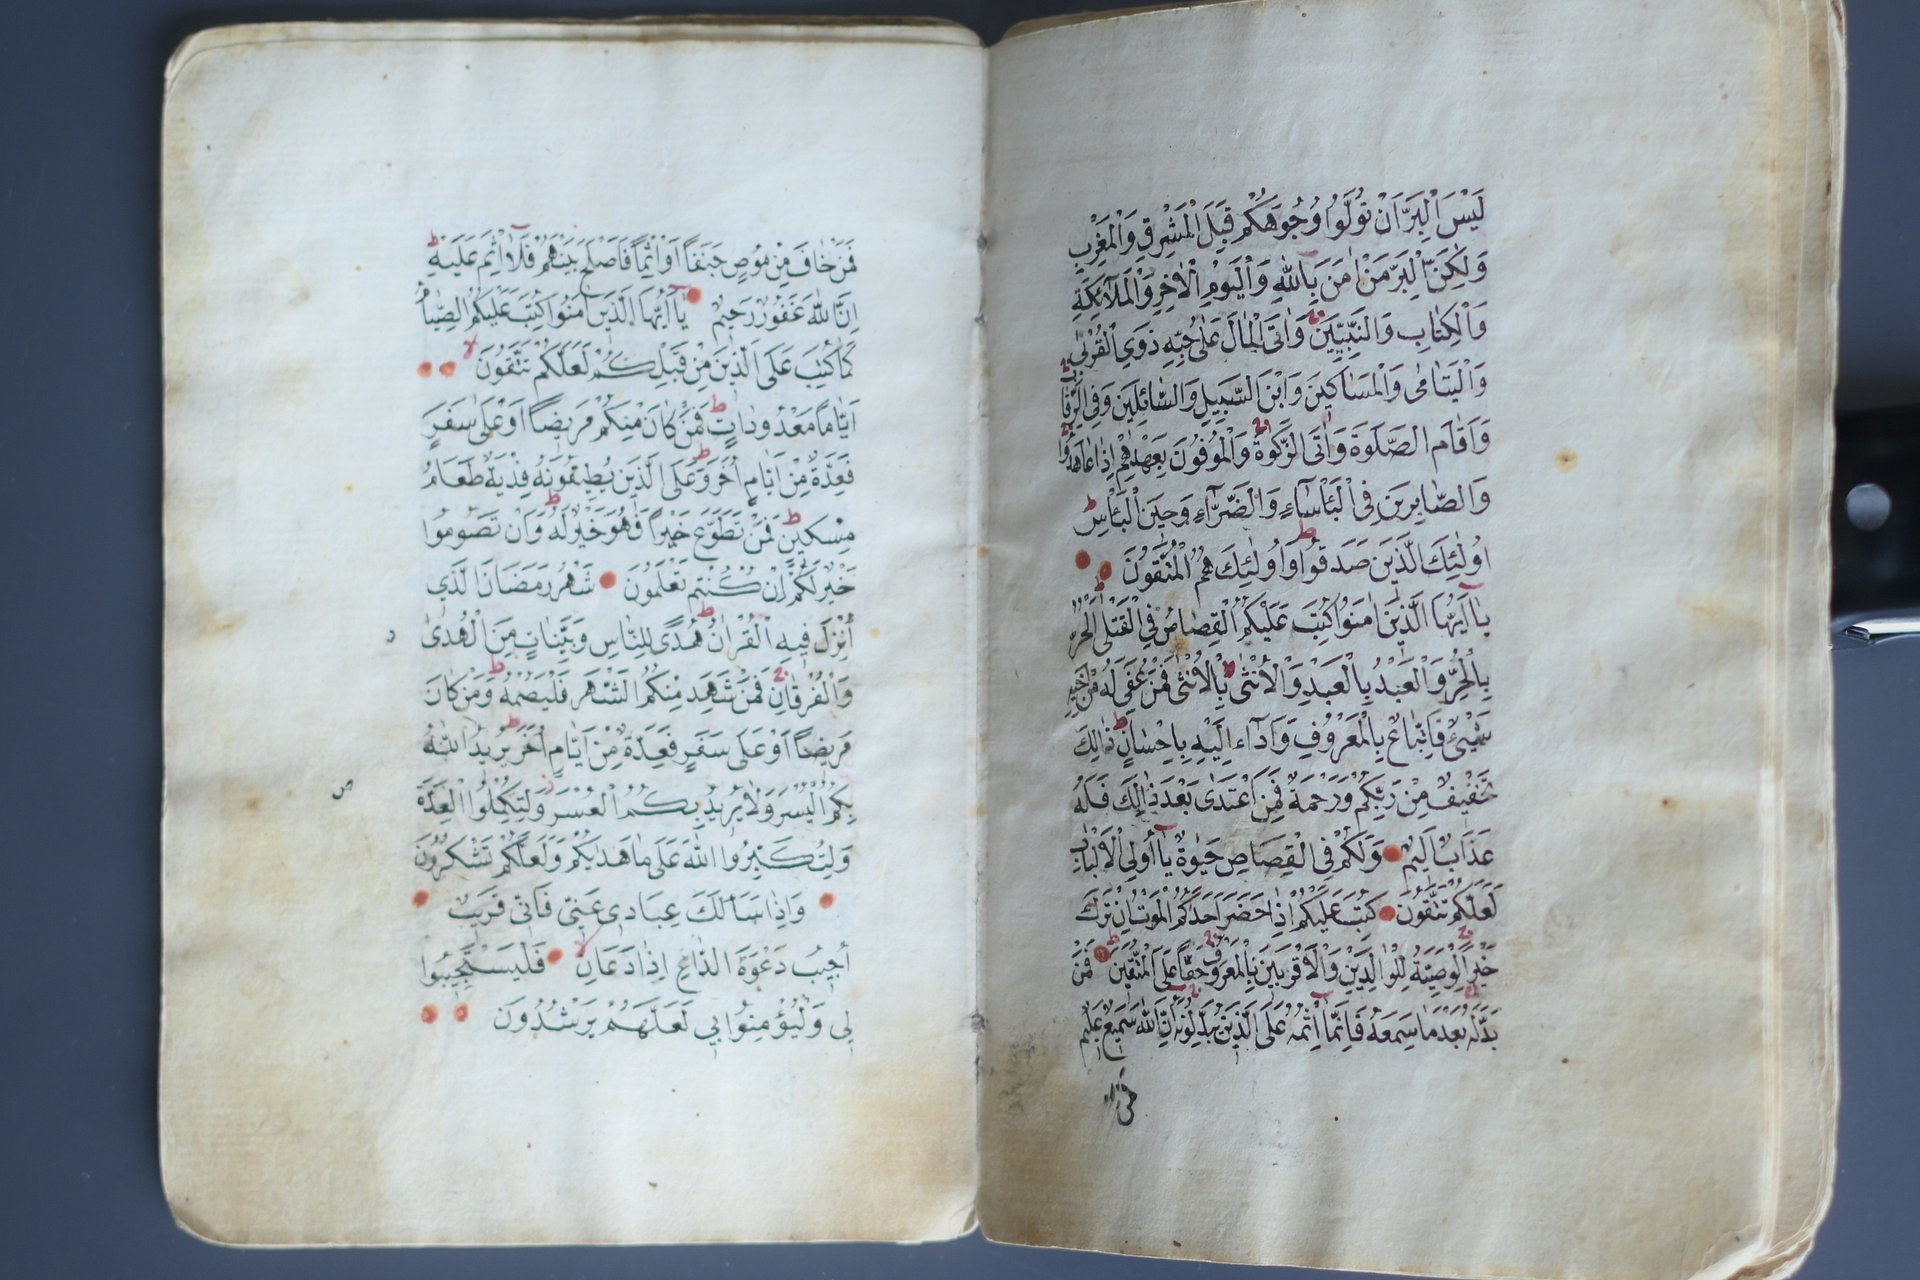 لَيْسَ الْبِرَّ اَنْ تُوَلُّوا وُجُوهَكُمْ قِبَلَ الْمَشْرِقِ وَالْمَغْرِبِ
وَلٰكِنَّ الْبِرَّ مَنْ اٰمَنَ بِاللّٰهِ وَالْيَوْمِ الْاٰخِرِ وَالْمَلٰٓائِكَةِ
وَالْكِتَابِ وَالنَّبِيّٖنَ وَاٰتَى الْمَالَ عَلٰى حُبِّهٖ ذَوِي الْقُرْبٰى
وَالْيَتَامٰى وَالْمَسَاكِينَ وَابْنَ السَّبِيلِ وَالسَّائِلِينَ وَفِي الرِّقَابِ
وَاَقَامَ الصَّلٰوةَ وَاٰتَى الزَّكٰوةَ وَالْمُوفُونَ بِعَهْدِهِمْ اِذَا عَاهَدُوا
وَالصَّابِرِينَ فِي الْبَأْسَاءِ وَالضَّرَّاءِ وَحِينَ الْبَأْسِ
اُولٰئِكَ الَّذِينَ صَدَقُوا وَاُولٰئِكَ هُمُ الْمُتَّقُونَ
يَا اَيُّهَا الَّذِينَ اٰمَنُوا كُتِبَ عَلَيْكُمُ الْقِصَاصُ فِي الْقَتْلٰى اَلْحُرُّ
بِالْحُرِّ وَالْعَبْدُ بِالْعَبْدِ وَالْاُنْثٰى بِالْاُنْثٰى فَمَنْ عُفِيَ لَهُ مِنْ اَخِيهِ
شَيْئٌ فَاتِّبَاعٌ بِالْمَعْرُوفِ وَاَدَاءٌ اِلَيْهِ بِاِحْسَانٍ ذٰلِكَ
تَخْفِيفٌ مِنْ رَبِّكُمْ وَرَحْمَةٌ فَمَنِ اعْتَدٰى بَعْدَ ذٰلِكَ فَلَهُ
عَذَابٌ اَلِيمٌ وَلَكُمْ فِي الْقِصَاصِ حَيٰوةٌ يَا اُولِي الْاَلْبَابِ
لَعَلَّكُمْ تَتَّقُونَ كُتِبَ عَلَيْكُمْ اِذَا حَضَرَ اَحَدَكُمُ الْمَوْتُ اِنْ تَرَكَ
خَيْرًا الْوَصِيَّةُ لِلْوَالِدَيْنِ وَالْاَقْرَبِينَ بِالْمَعْرُوفِ حَقًّا عَلَى الْمُتَّقِينَ فَمَنْ
بَدَّلَهُ بَعْدَ مَا سَمِعَهُ فَاِنَّمَا اِثْمُهُ عَلَى الَّذِينَ يُبَدِّلُونَهُ اِنَّ اللّٰهَ سَمِيعٌ عَلِيمٌ
فَمَنْ خَافَ مِنْ مُوصٍ جَنَفًا اَوْ اِثْمًا فَاَصْلَحَ بَيْنَهُمْ فَلَا اِثْمَ عَلَيْهِ
اِنَّ اللّٰهَ غَفُورٌ رَحِيمٌ يَا اَيُّهَا الَّذِينَ اٰمَنُوا كُتِبَ عَلَيْكُمُ الصِّيَامُ
كَمَا كُتِبَ عَلَى الَّذِينَ مِنْ قَبْلِكُمْ لَعَلَّكُمْ تَتَّقُونَ
اَيَّامًا مَعْدُودَاتٍ فَمَنْ كَانَ مِنْكُمْ مَرِيضًا اَوْ عَلٰى سَفَرٍ
فَعِدَّةٌ مِنْ اَيَّامٍ اُخَرَ وَعَلَى الَّذِينَ يُطِيقُونَهُ فِدْيَةٌ طَعَامُ
مِسْكِينٍ فَمَنْ تَطَوَّعَ خَيْرًا فَهُوَ خَيْرٌ لَهُ وَاَنْ تَصُومُوا
خَيْرٌ لَكُمْ اِنْ كُنْتُمْ تَعْلَمُونَ شَهْرُ رَمَضَانَ الَّذِي
اُنْزِلَ فِيهِ الْقُرْاٰنُ هُدًى لِلنَّاسِ وَبَيِّنَاتٍ مِنَ الْهُدٰى
وَالْفُرْقَانِ فَمَنْ شَهِدَ مِنْكُمُ الشَّهْرَ فَلْيَصُمْهُ وَمَنْ كَانَ
مَرِيضًا اَوْ عَلٰى سَفَرٍ فَعِدَّةٌ مِنْ اَيَّامٍ اُخَرَ يُرِيدُ اللّٰهُ
بِكُمُ الْيُسْرَ وَلَا يُرِيدُ بِكُمُ الْعُسْرَ وَلِتُكْمِلُوا الْعِدَّةَ
وَلِتُكَبِّرُوا اللّٰهَ عَلٰى مَا هَدٰيكُمْ وَلَعَلَّكُمْ تَشْكُرُونَ
وَاِذَا سَاَلَكَ عِبَادِي عَنِّي فَاِنِّي قَرِيبٌ
اُجِيبُ دَعْوَةَ الدَّاعِ اِذَا دَعَانِ فَلْيَسْتَجِيبُوا
لِي وَلْيُؤْمِنُوا بِي لَعَلَّهُمْ يَرْشُدُونَ